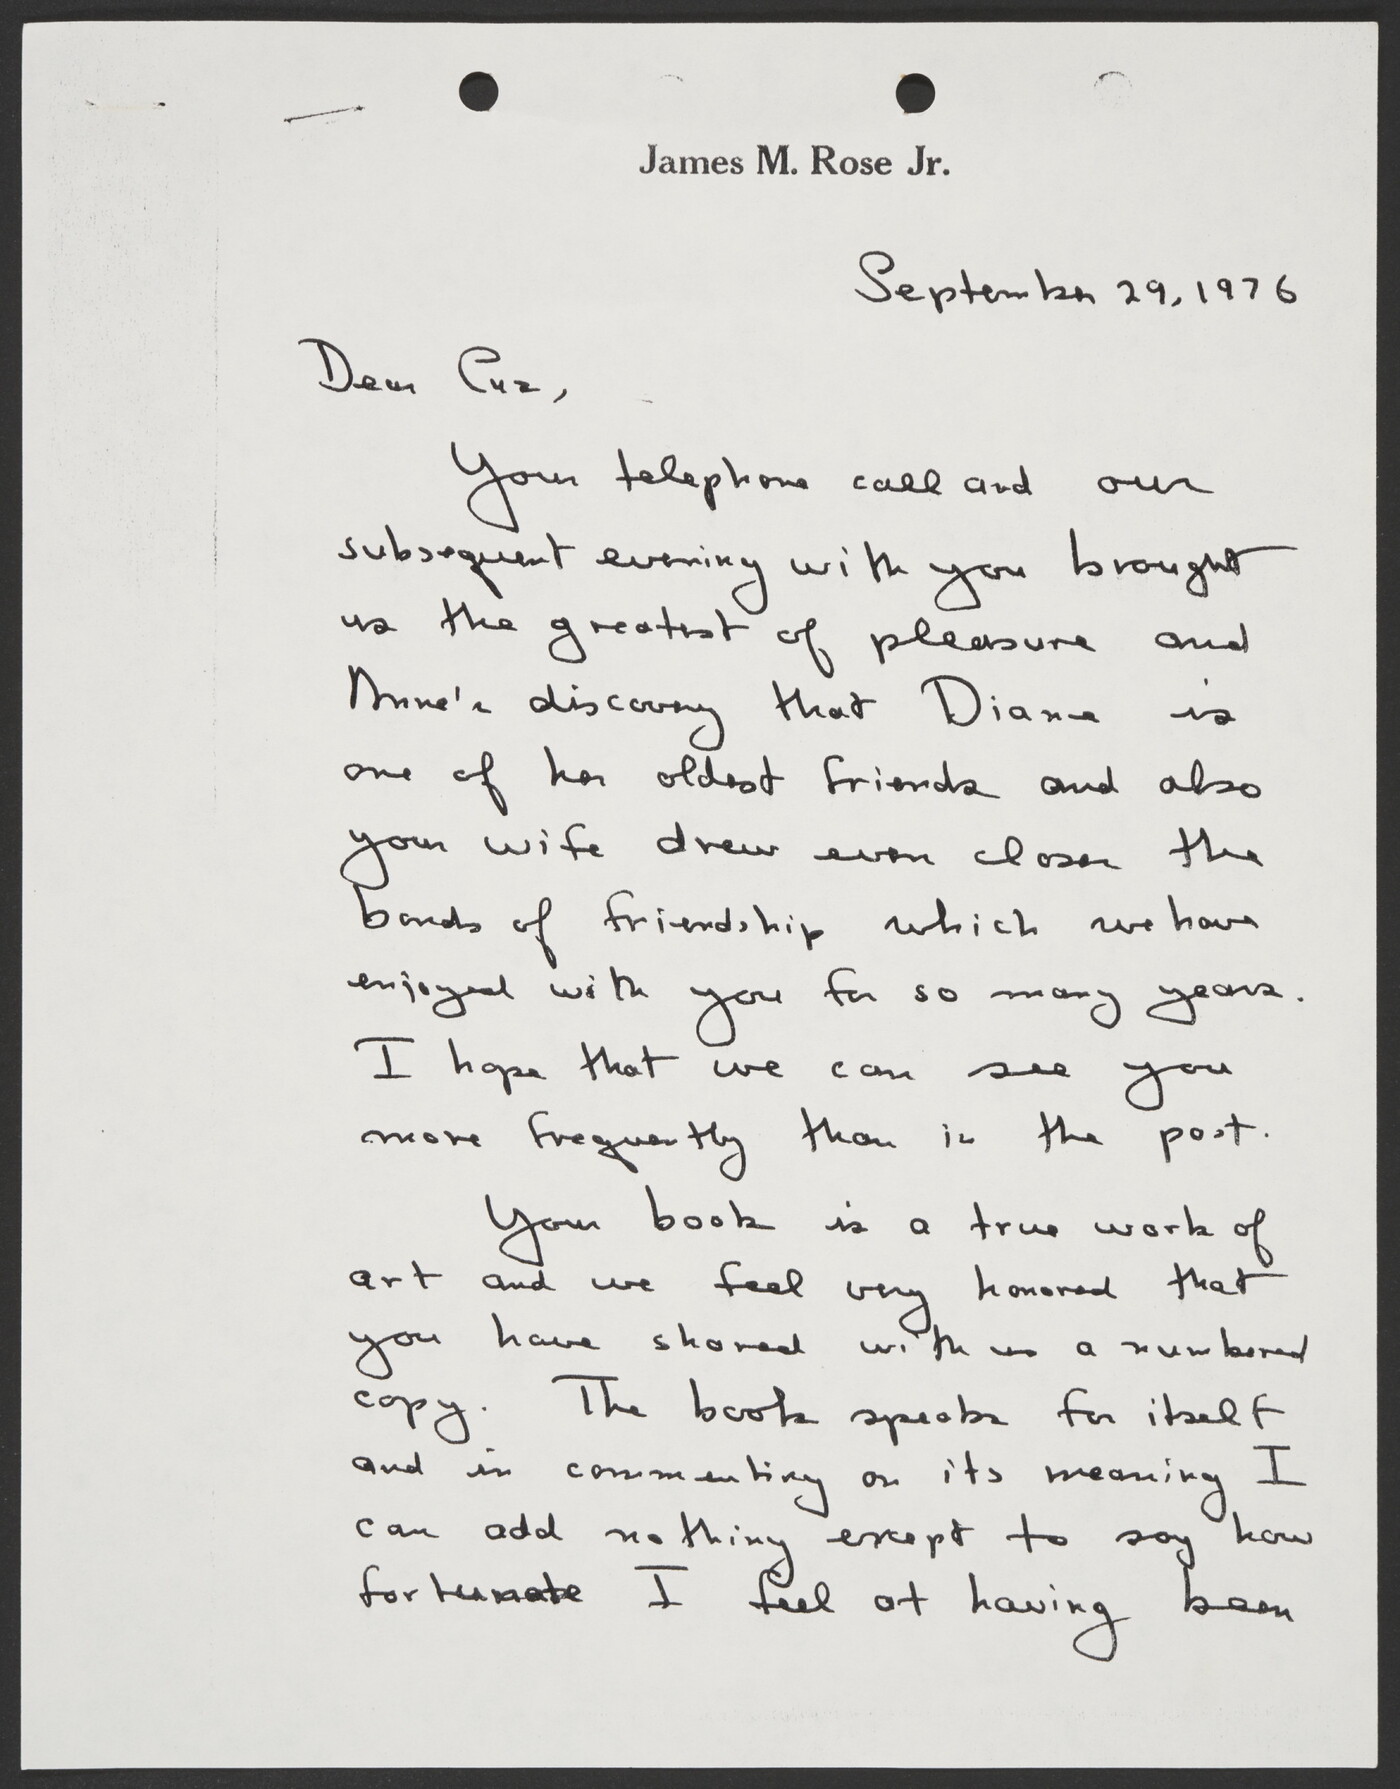 James M. Rose Jr.
September 29, 1976
Dear Cuz,
Your telephone call and our
subsequent evening with you brought
us the greatest of pleasure and
Anne's discovery that Diana is
one of her oldest friends and also
your wife drew even closer the
bonds of friendship which we have
enjoyed with you for so many years.
I hope that we can see you
more frequently than in the past.
Your book is a true work of
art and we feel very honored that
you have shared with us a numbered
copy. The book speaks for itself
and in commenting on its meaning I
can add nothing except to say how
fortunate I feel at having been